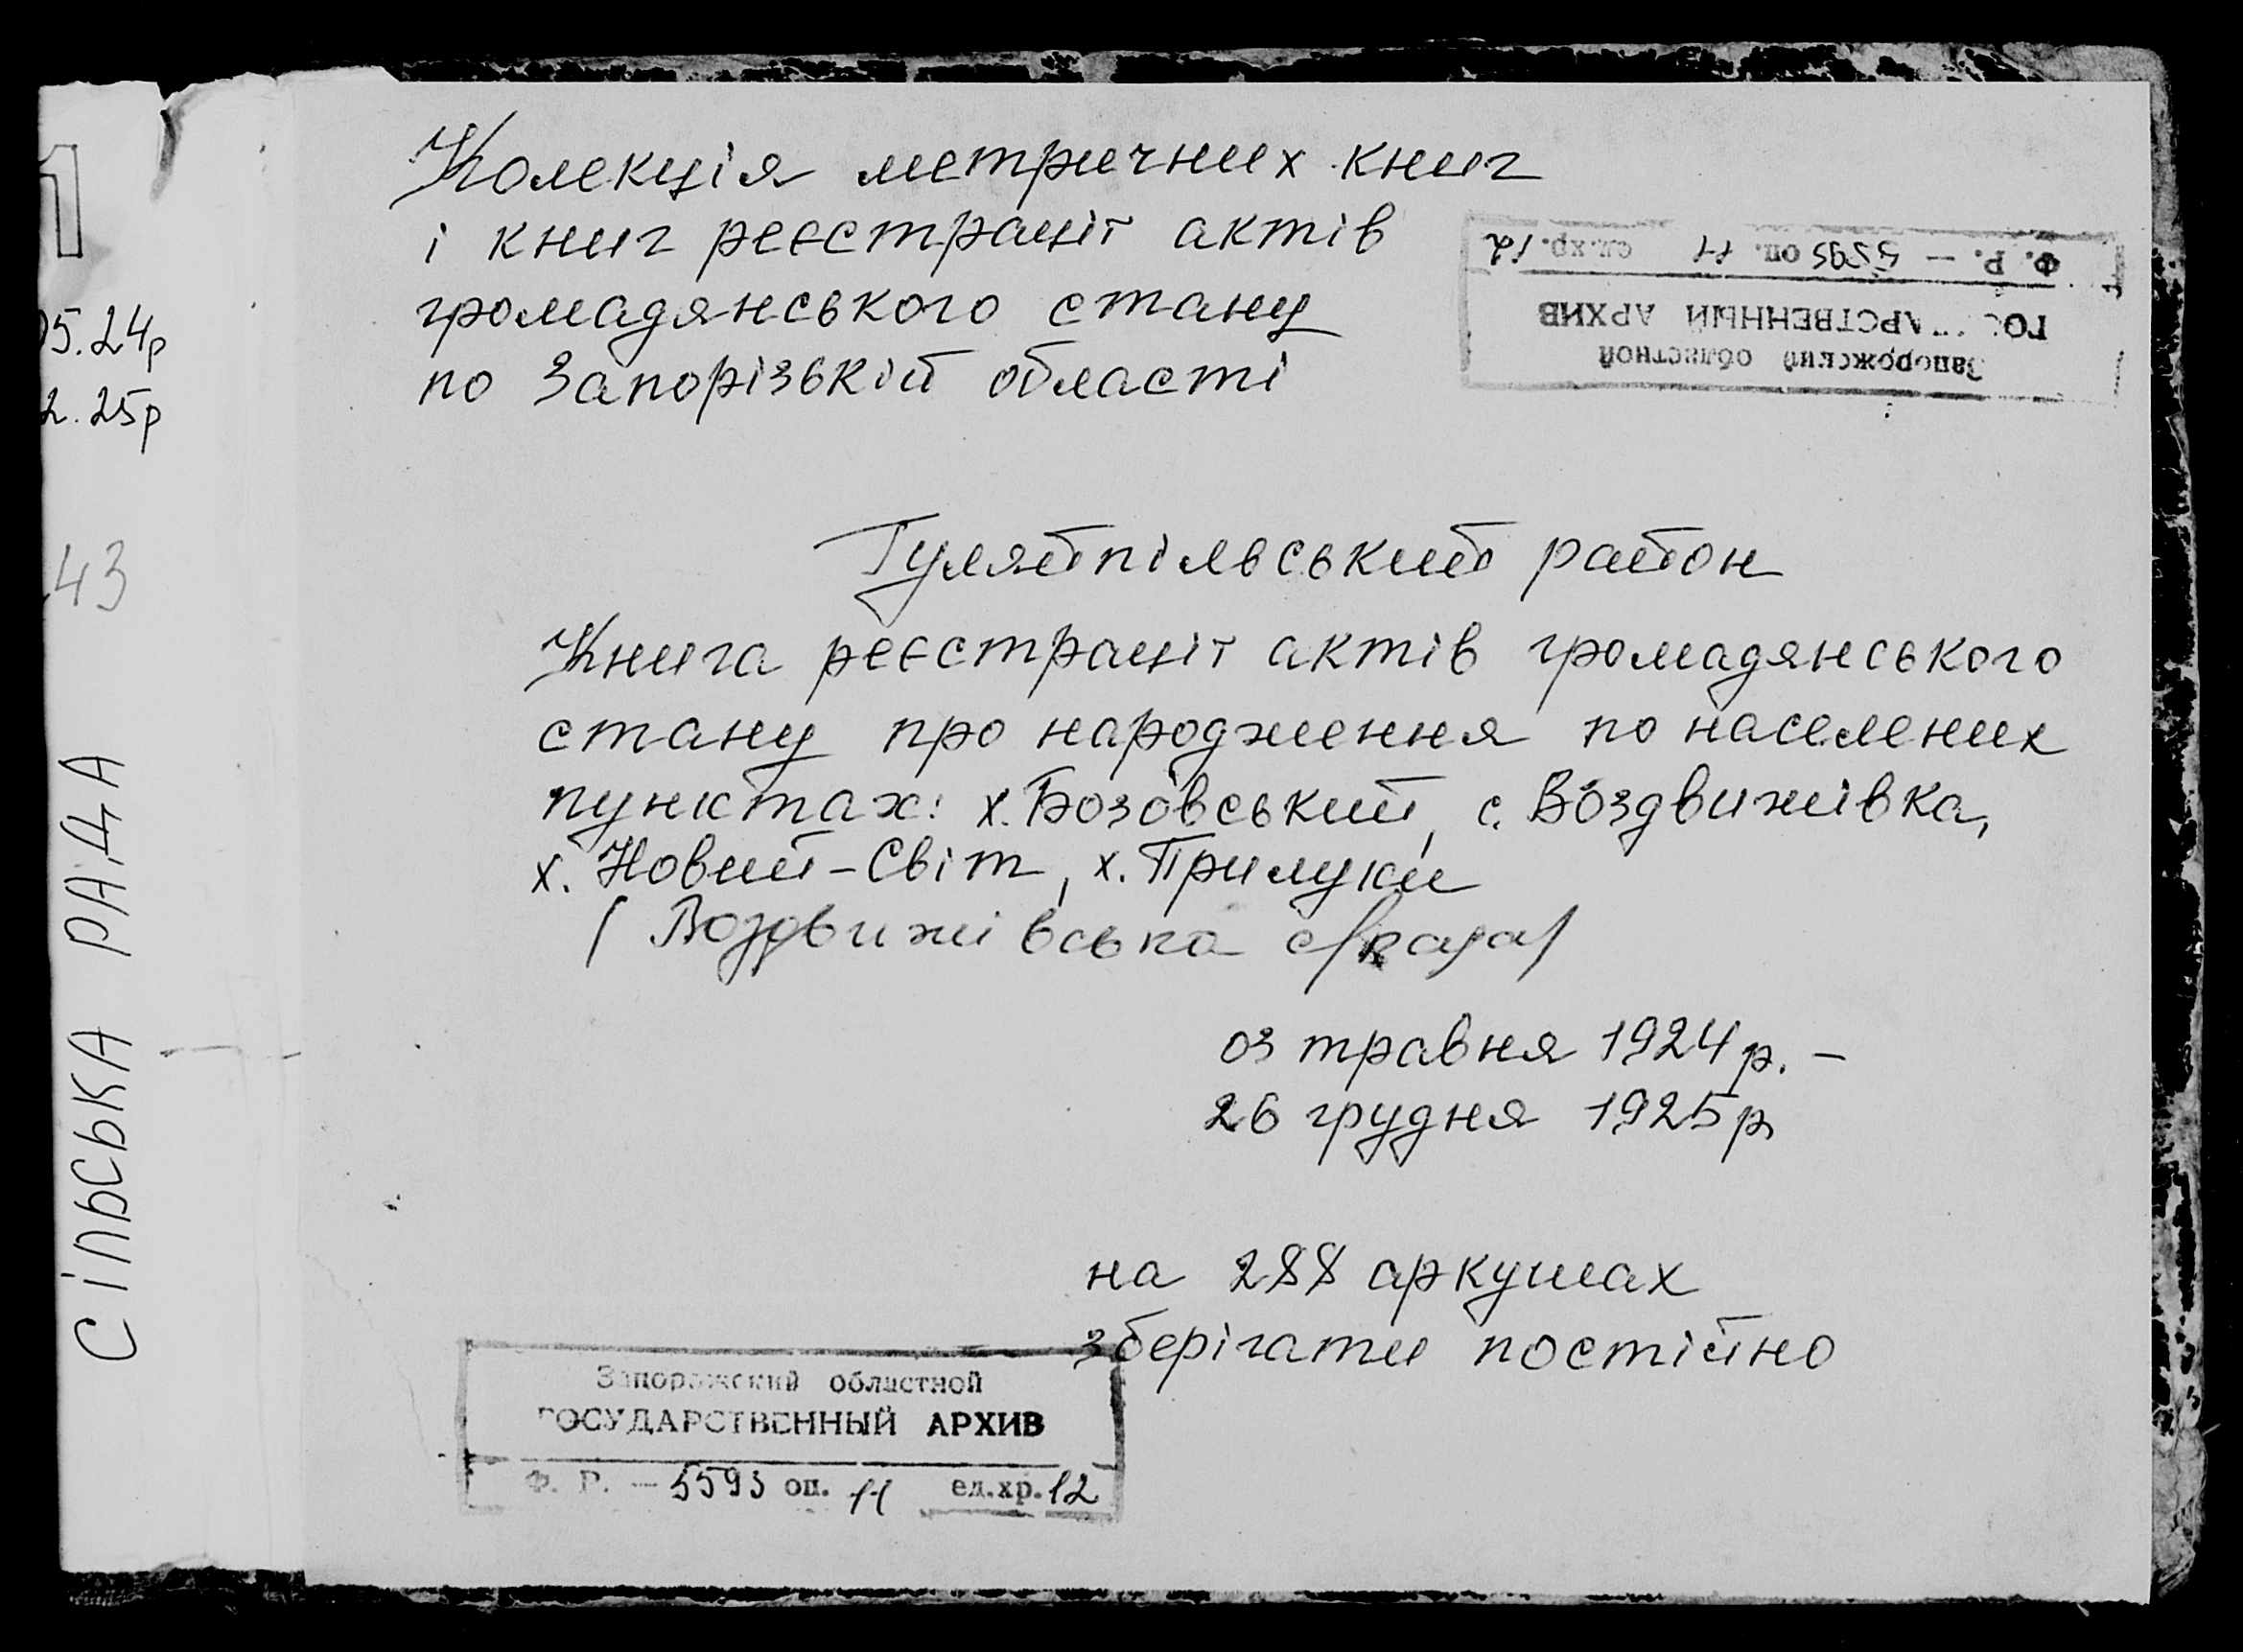 1
05.24р
2.25р
43
СІЛЬСЬКА РАДА
Колекція метричних книг
і книг реєстрації актів
громадянського стану
по Запорізькій області
Запорожский областной
ГОСУДАРСТВЕННЫЙ АРХИВ
Ф. Р. — 5593 оп. 11 ед.хр. 12
Гуляйпільський район
Книга реєстрації актів громадянського
стану про народження по населених
пунктах: х. Бозовський, с. Воздвижівка,
х. Новий-Світ, х. Прилуки
/ Воздвижівська с/рада/
03 травня 1924 р. –
26 грудня 1925 р
на 288 аркушах
зберігати постійно
Запорожский областной
ГОСУДАРСТВЕННЫЙ АРХИВ
Ф. Р. — 5593 оп. 11 ед.хр. 12